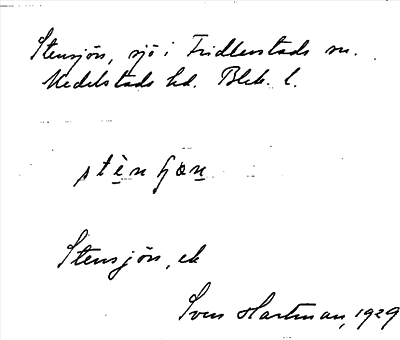 Stensjön, sjö i Fridlevstads sn.
Medelstads hd. Blek. l.
stèn ɧön
Stensjön, ek
Sven Hartman, 1929